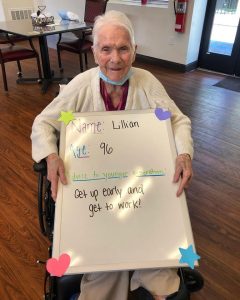 Name: Lillian
Age: 96
Advice to younger generation:
Get up early and
get to work!